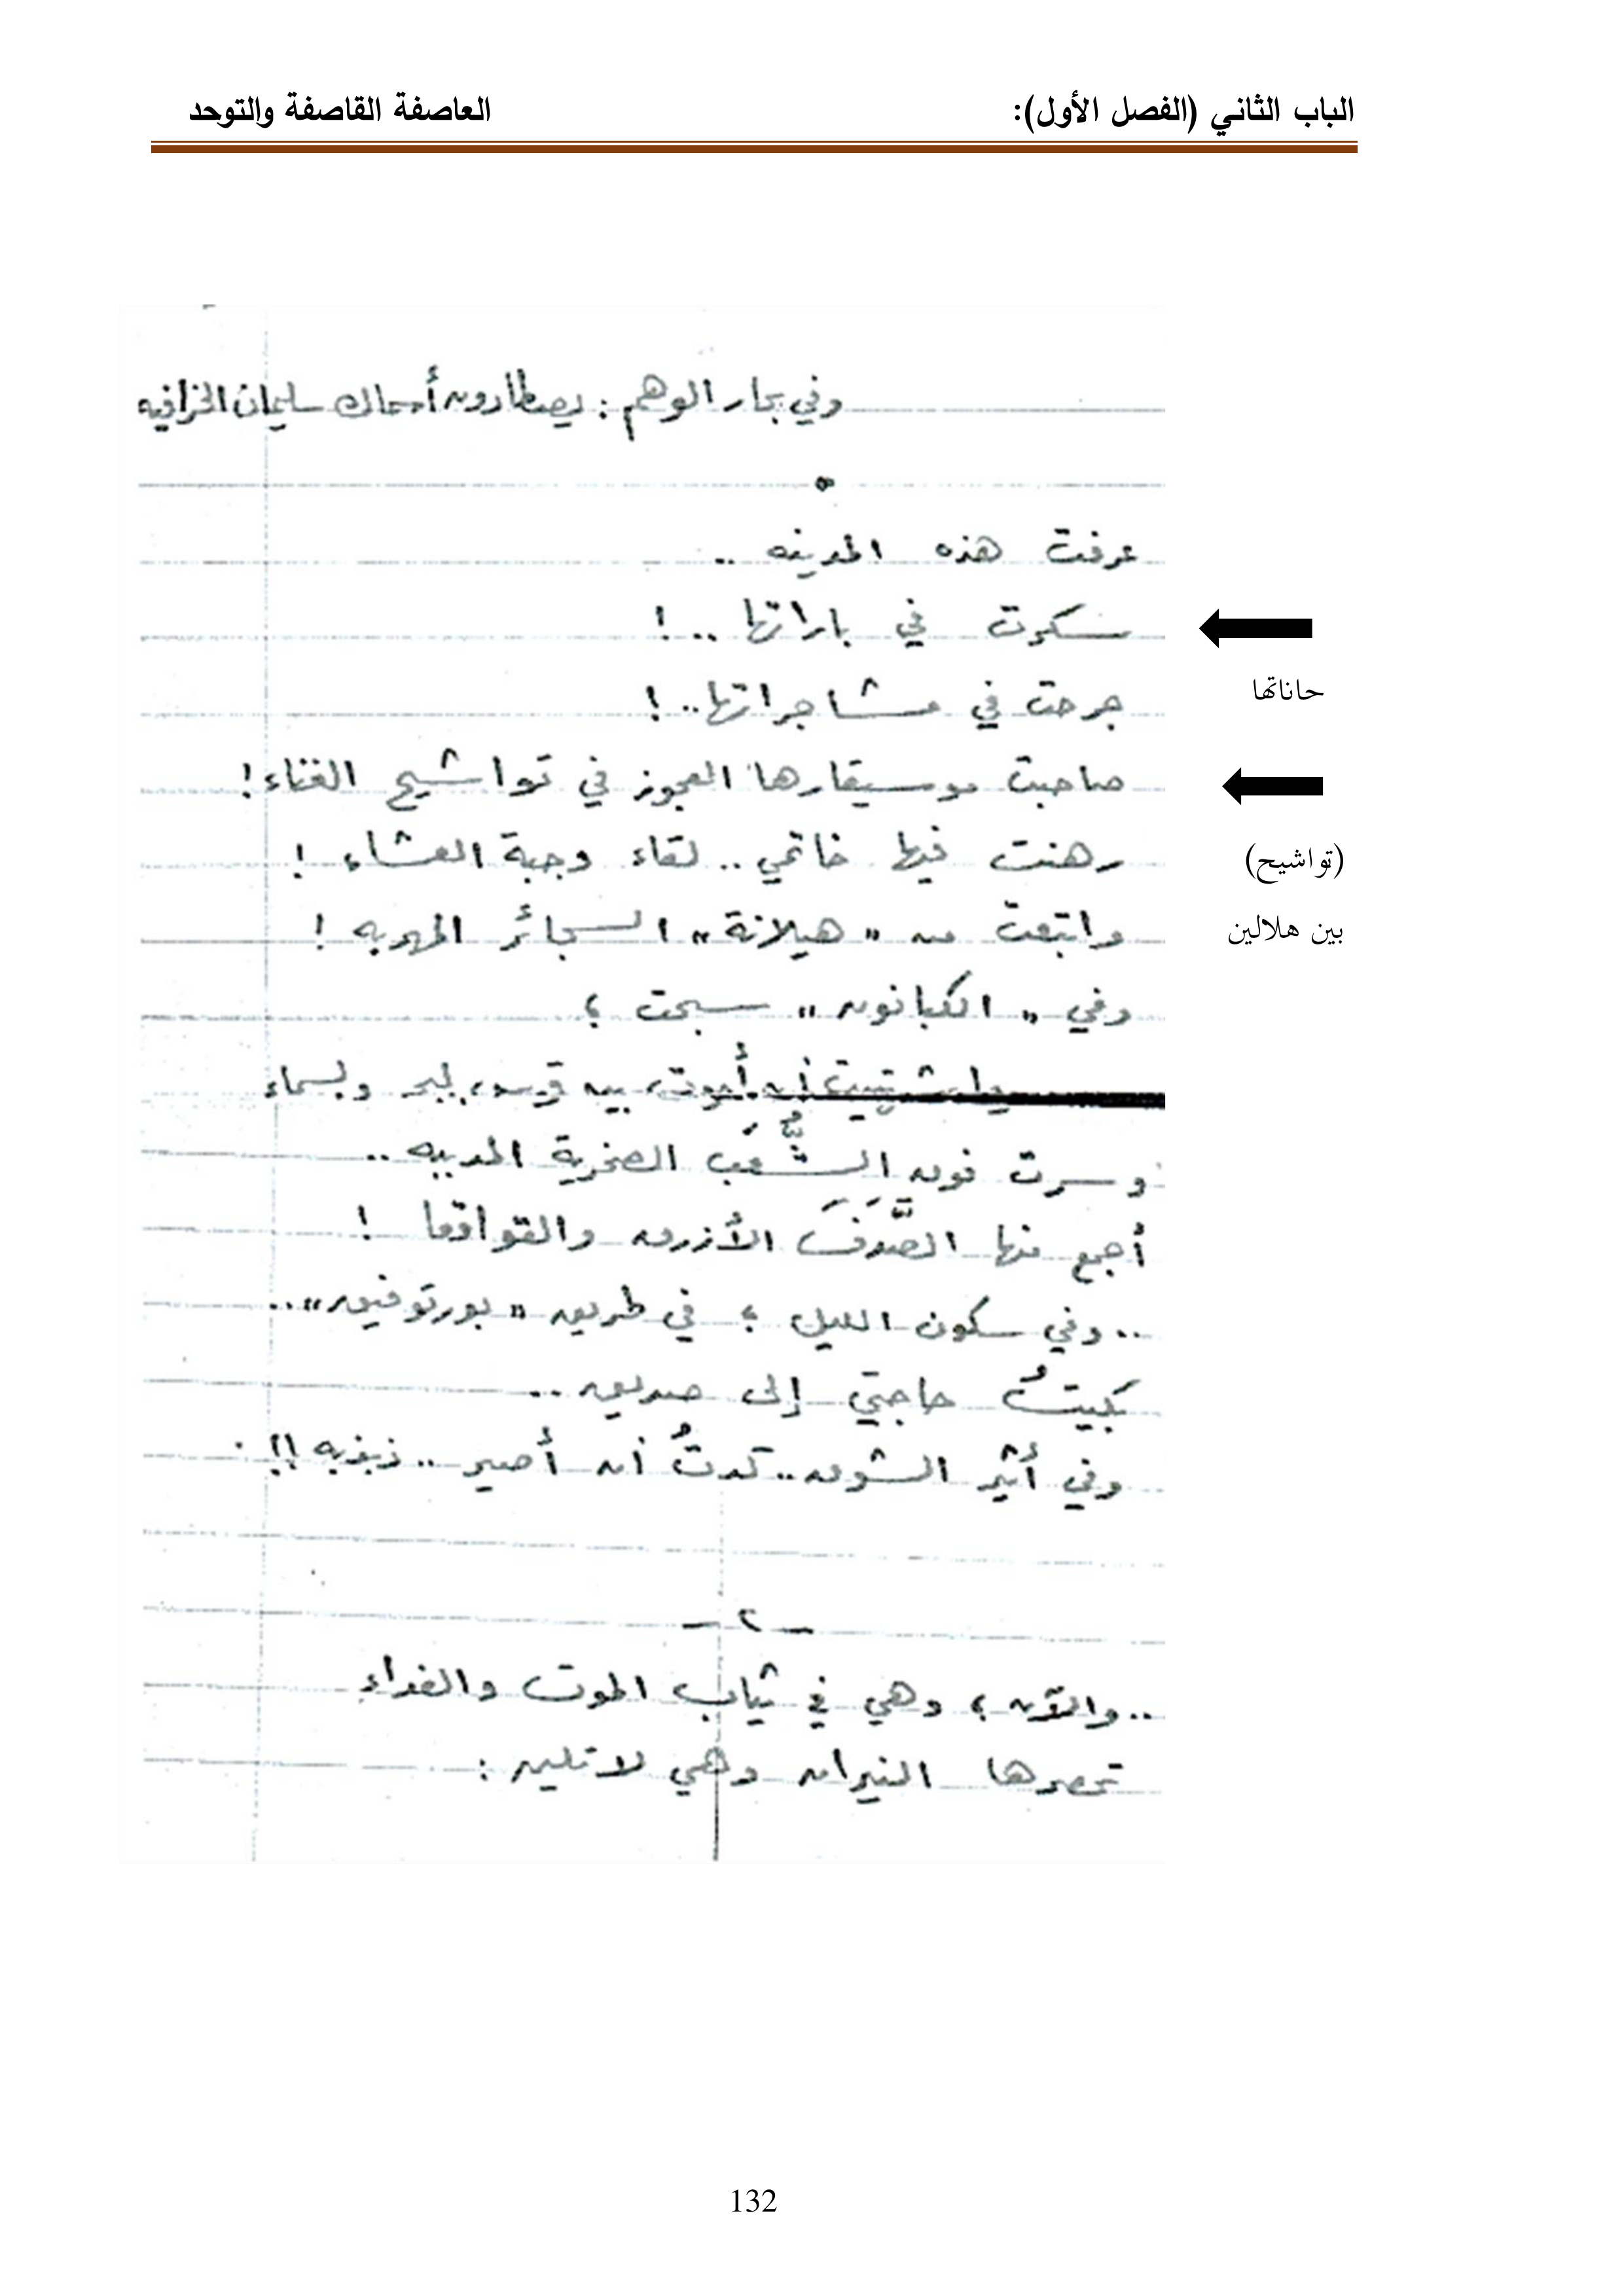 الباب الثاني (الفصل الأول): العاصفة القاصفة والتوحد
وفي بحار الوهم : يصطادون أسماك سليمان الخرافيه
عرفت هذه المدينه ..
سكرت في باراتها ..!
حاناتها
جرحت في مشاجراتها..!
صاحبت موسيقارها العجوز في تواشيح الغناء!
رهنت فيها خاتمي .. لقاء وجبة العشاء !
(تواشيح)
وابتعت من "هيلانة" السجائر المهربه !
بين هلالين
وفي "الكبانون" سبحت ؛
واشتهيت أن أموت بين قوس البحر والسماء
وسرت فوق الشُّعَب الصخرية المدببه ..
أجمع منها الصَّدَفَ الأزرق والقواقعا !
..وفي سكون الليل ؛ في طريق "بورتوفيق"..
بكيتُ حاجتي إلى صديق ..
وفي أثير الشوق.. كدتُ أن أصير .. ذبذبه !!
- ٢ -
..والآن ؛ وهي في ثياب الموت والفداء
تحصرها النيران وهي لا تلين :
132